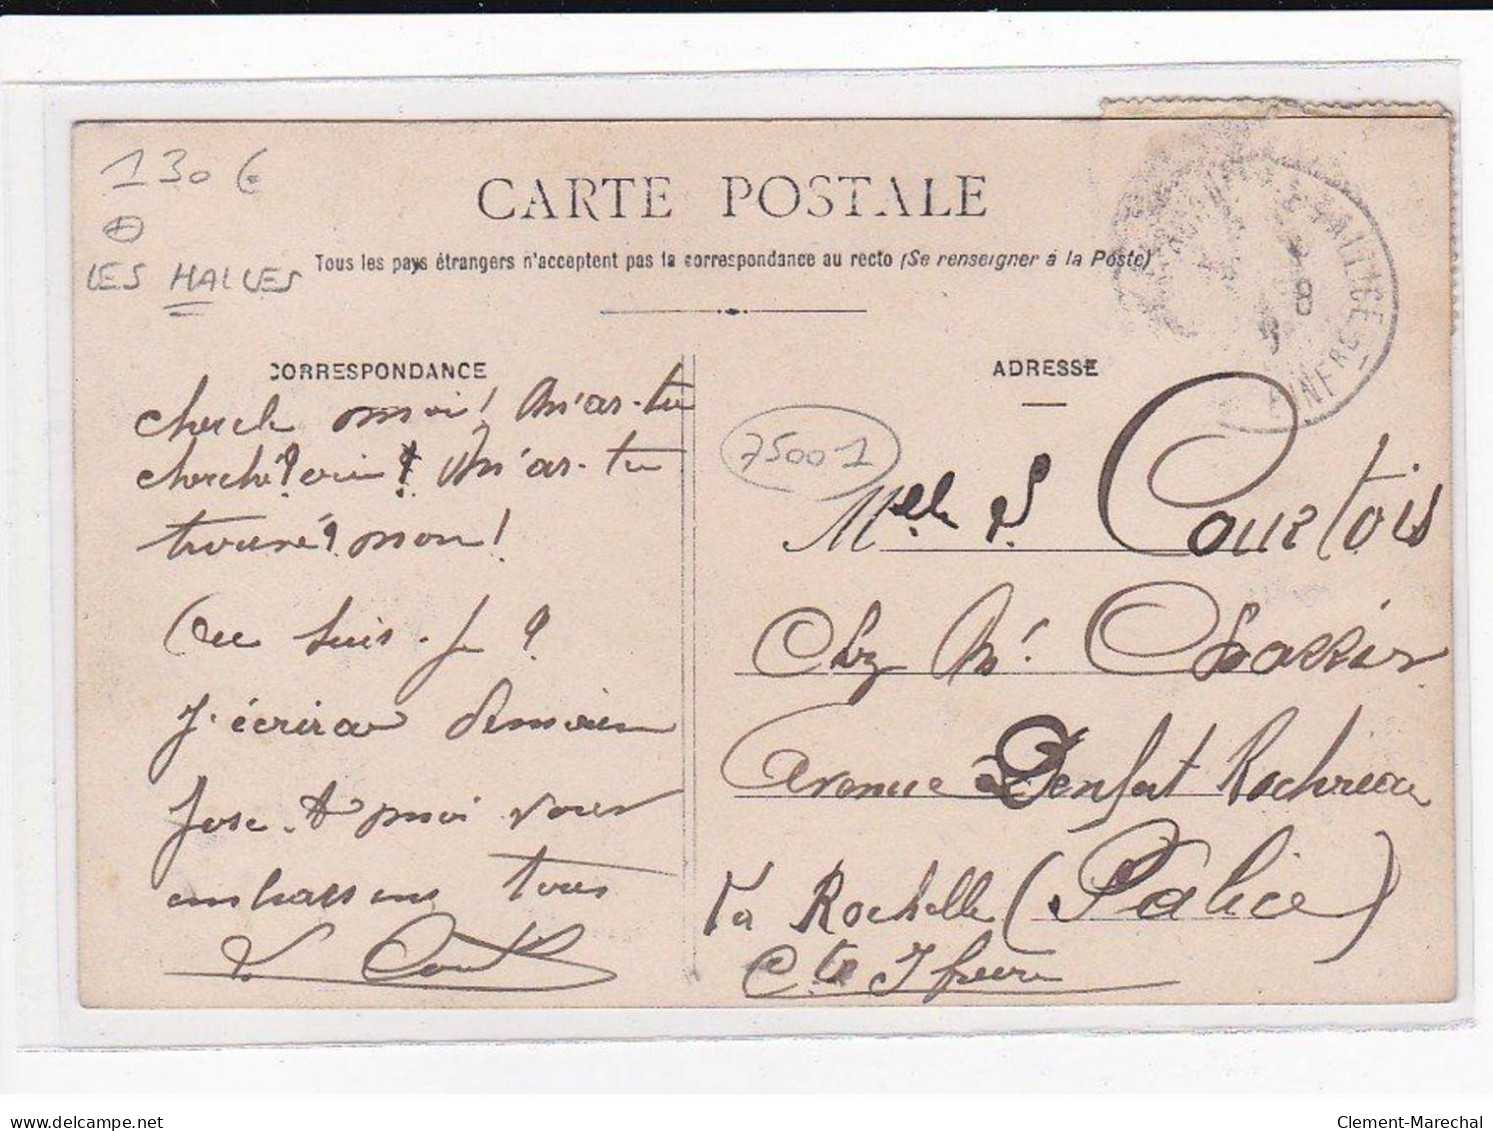 130 €
LES HALLES
CARTE POSTALE
Tous les pays étrangers n'acceptent pas la correspondance au recto (Se renseigner à la Poste)
CORRESPONDANCE
cherche moi! M'as-tu
cherché? oui! M'as-tu
trouvé? non!
Où suis-je?
J'écrirai demain
José et moi vous
embrassons tous
ADRESSE
75001
Melle S. Courtois
Chez Mr
Avenue Denfert Rochereau
La Rochelle (Palice)
Cte Ifreure
INFRE
8
delcampe.net
Clement-Marechal